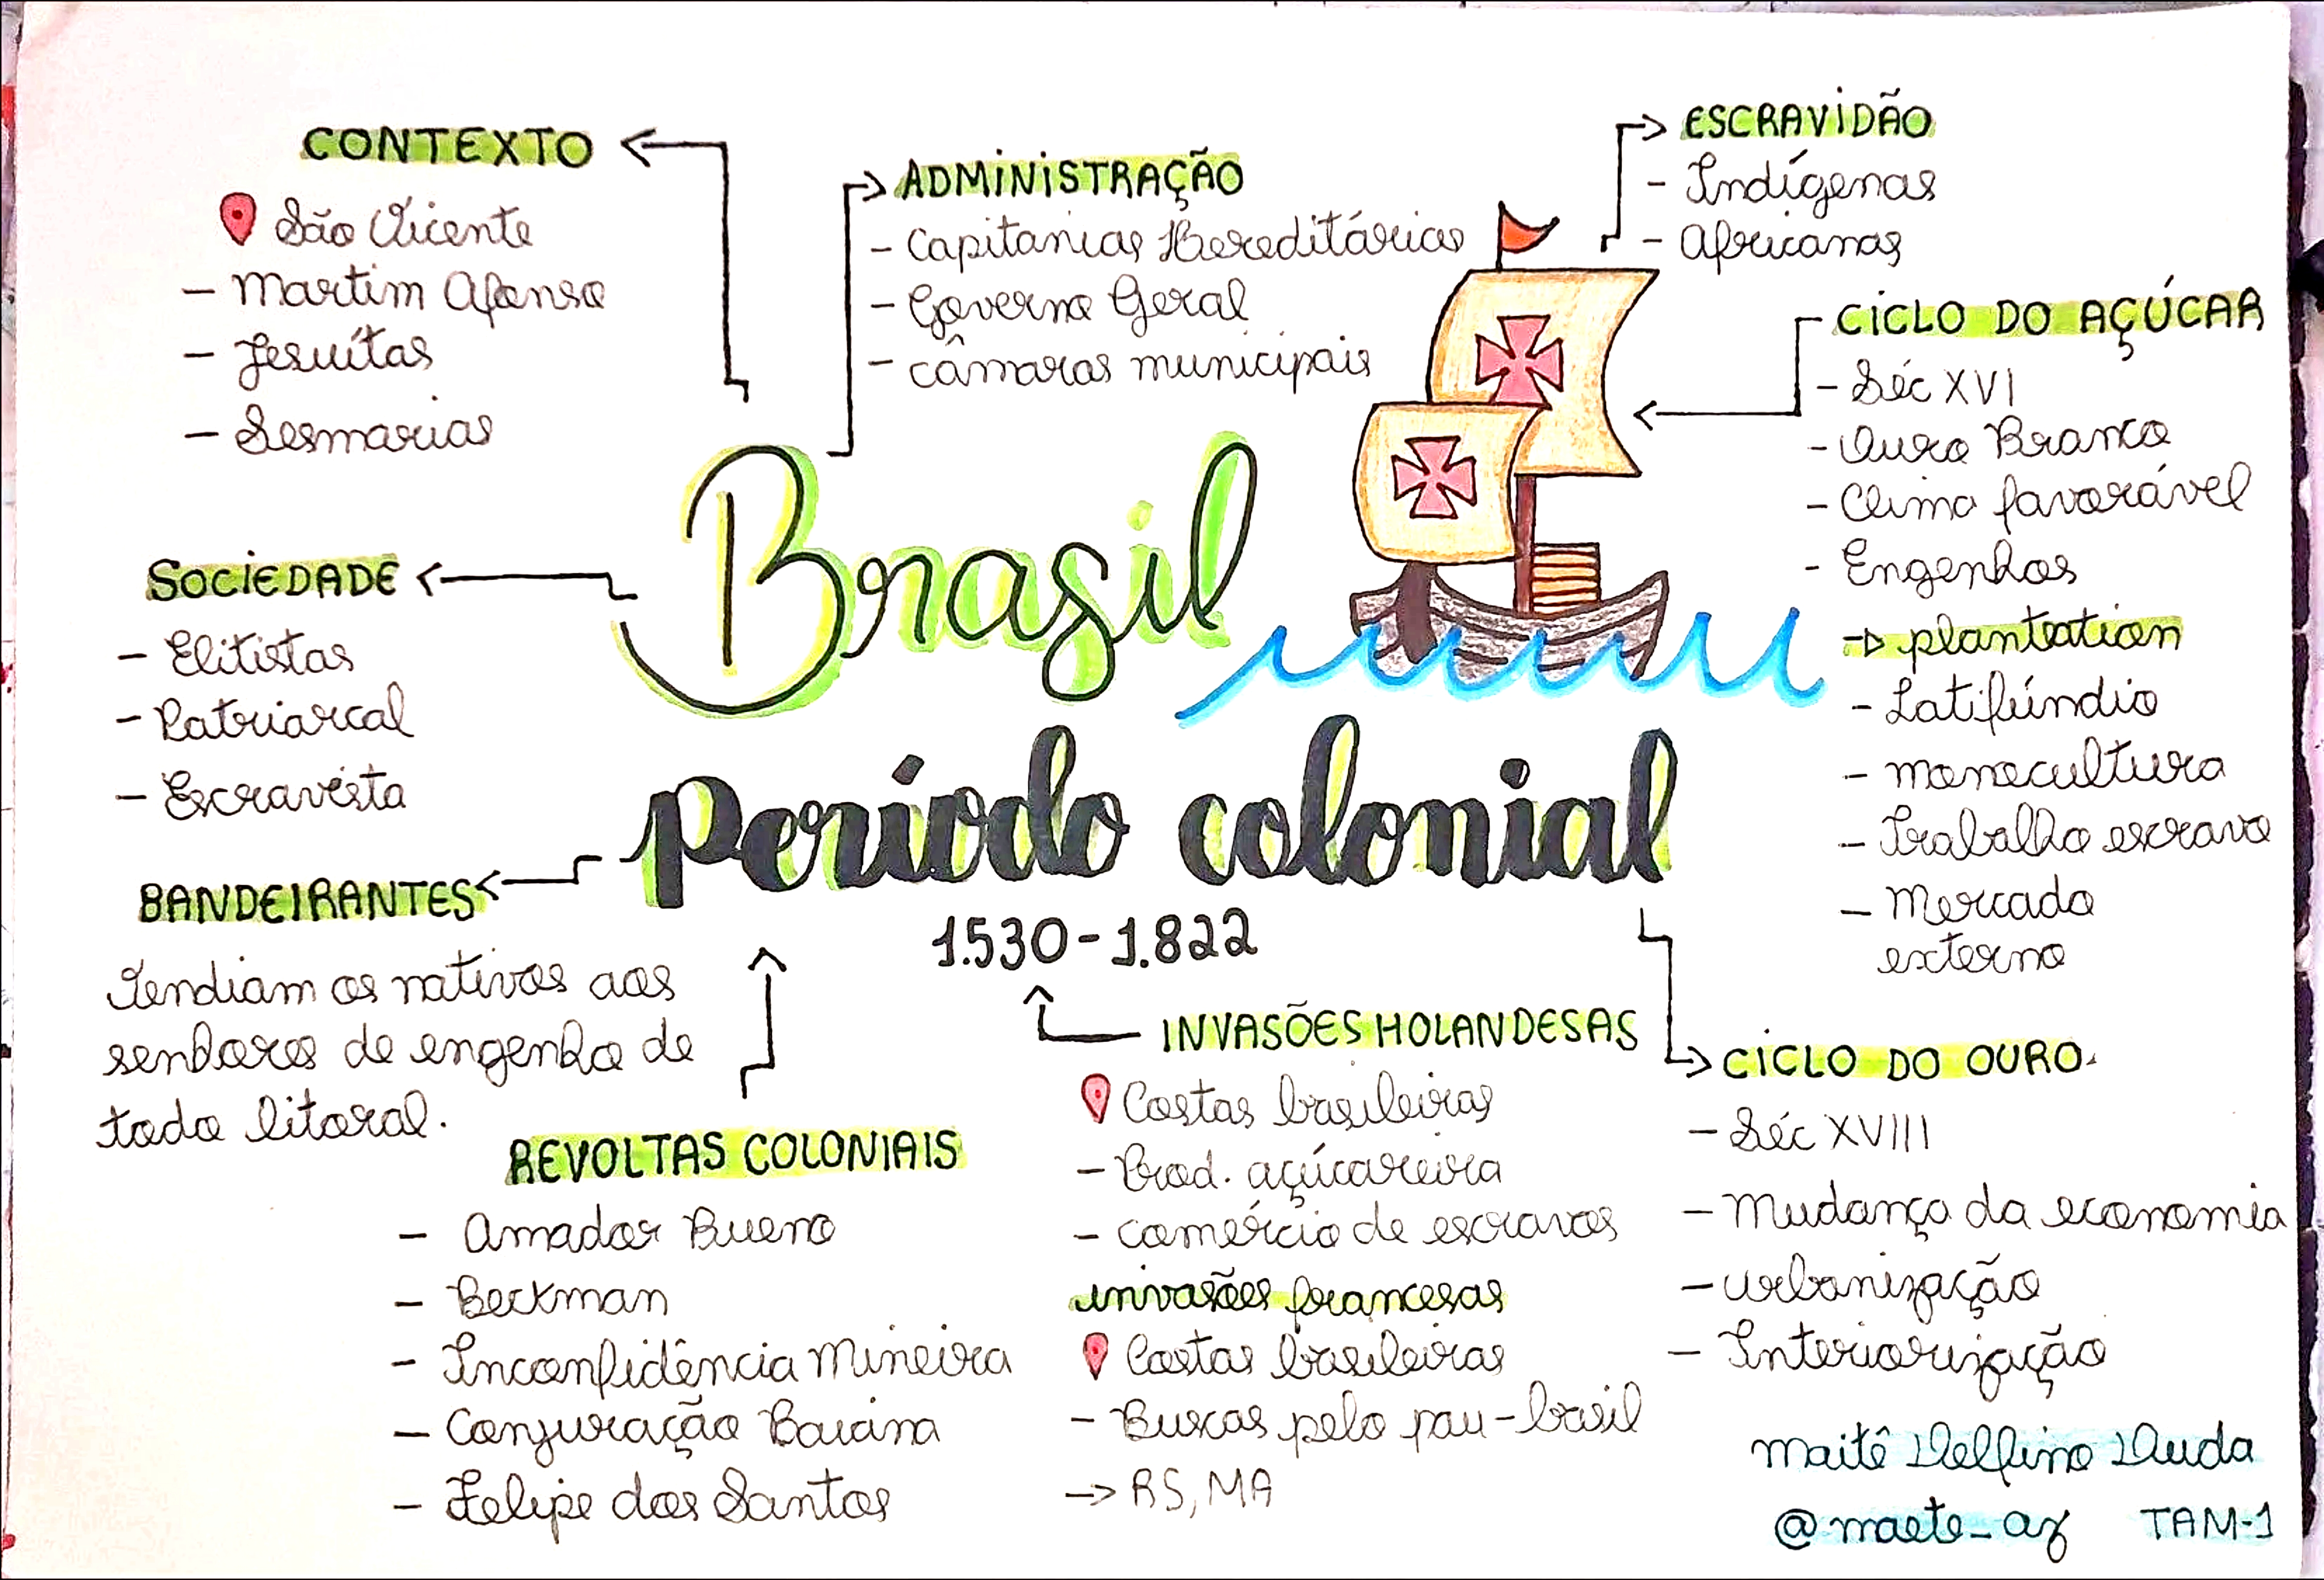 CONTEXTO
São Vicente
- Martim Afonso
- Jesuítas
- Sesmarias
ADMINISTRAÇÃO
- Capitanias Hereditárias
- Governo Geral
- câmaras municipais
ESCRAVIDÃO
- Indígenas
- Africanos
CICLO DO AÇÚCAR
- Séc XVI
- Ouro Branco
- Clima favorável
- Engenhos
plantation
- Latifúndio
- monocultura
- Trabalho escravo
- Mercado
externo
SOCIEDADE
- Elitistas
- Patriarcal
- Escravista
Brasil
Período colonial
1.530-1.822
BANDEIRANTES
Vendiam os nativos aos
senhores de engenho de
todo litoral.
REVOLTAS COLONIAIS
- Amador Bueno
- Beckman
- Inconfidência Mineira
- Conjuração Baiana
- Felipe dos Santos
INVASÕES HOLANDESAS
Costas brasileiras
- Prod. açúcareira
- comércio de escravos
invasões francesas
Costas brasileiras
- Buscas pelo pau-brasil
→ RS, MA
CICLO DO OURO.
- Séc XVIII
- Mudança da economia
- urbanização
- Interiorização
Maitê Delfino Duda
@maete_az TAM-1